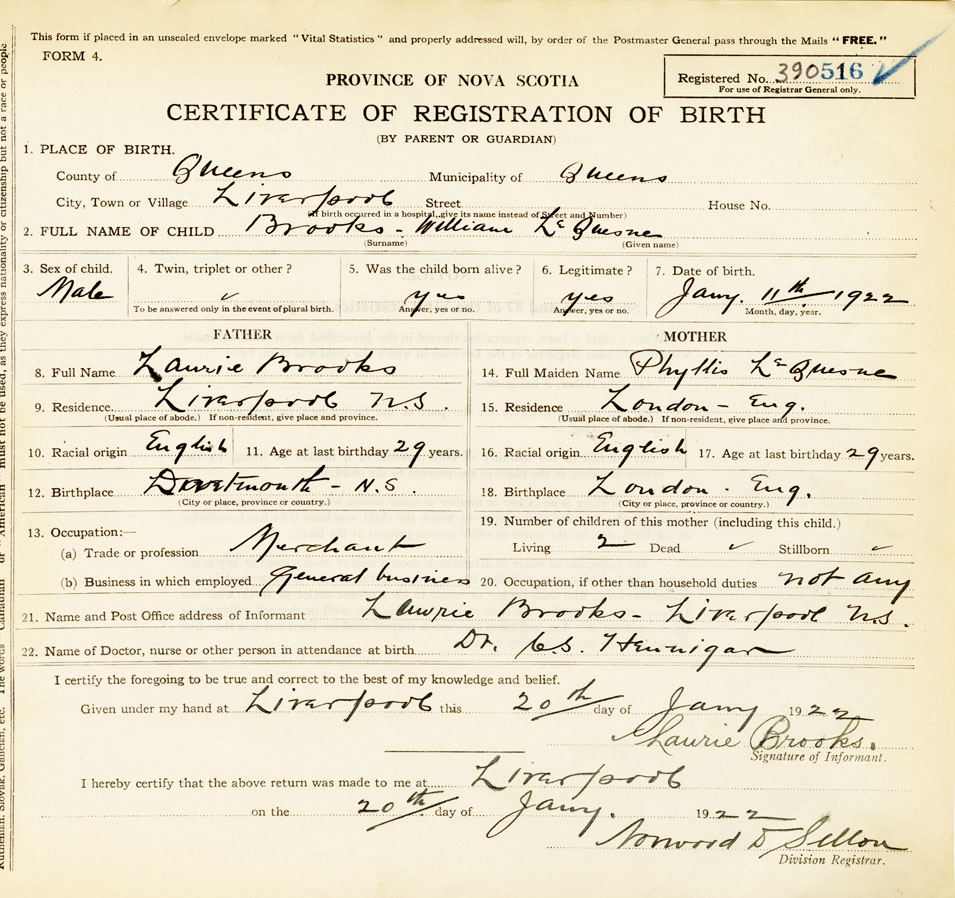 This form if placed in an unsealed envelope marked "Vital Statistics" and properly addressed will, by order of the Postmaster General pass through the Mails "FREE."
FORM 4.
PROVINCE OF NOVA SCOTIA
Registered No. 390516
For use of Registrar General only.
CERTIFICATE OF REGISTRATION OF BIRTH
(BY PARENT OR GUARDIAN)
1. PLACE OF BIRTH.
County of Queens Municipality of Queens
City, Town or Village Liverpool Street House No.
(If birth occurred in a hospital, give its name instead of Street and Number)
2. FULL NAME OF CHILD Brooks - William Le Quesne
(Surname) (Given name)
3. Sex of child. 4. Twin, triplet or other? 5. Was the child born alive? 6. Legitimate? 7. Date of birth.
Male ✓ yes yes Jany. 11th 1922
To be answered only in the event of plural birth. Answer, yes or no. Answer, yes or no. Month, day, year.
FATHER MOTHER
8. Full Name Laurie Brooks 14. Full Maiden Name Phyllis Le Quesne
9. Residence. Liverpool N.S. 15. Residence London - Eng.
(Usual place of abode.) If non-resident, give place and province. (Usual place of abode.) If non-resident, give place and province.
10. Racial origin English 11. Age at last birthday 29 years. 16. Racial origin English 17. Age at last birthday 29 years.
12. Birthplace Dartmouth - N.S. 18. Birthplace London - Eng.
(City or place, province or country.) (City or place, province or country.)
13. Occupation:— 19. Number of children of this mother (including this child.)
(a) Trade or profession Merchant Living 2 Dead ✓ Stillborn ✓
(b) Business in which employed General business 20. Occupation, if other than household duties not any
21. Name and Post Office address of Informant Laurie Brooks - Liverpool N.S.
22. Name of Doctor, nurse or other person in attendance at birth Dr. C.S. Hennigar
I certify the foregoing to be true and correct to the best of my knowledge and belief.
Given under my hand at Liverpool this 20th day of Jany 1922
Laurie Brooks.
Signature of Informant.
I hereby certify that the above return was made to me at Liverpool
on the 20th day of Jany. 1922
Norwood D Sellon
Division Registrar.
must not be used, as they express nationality or citizenship but not a race or people
Ruthenian, Slovak, Galician, etc. The words Canadian or American